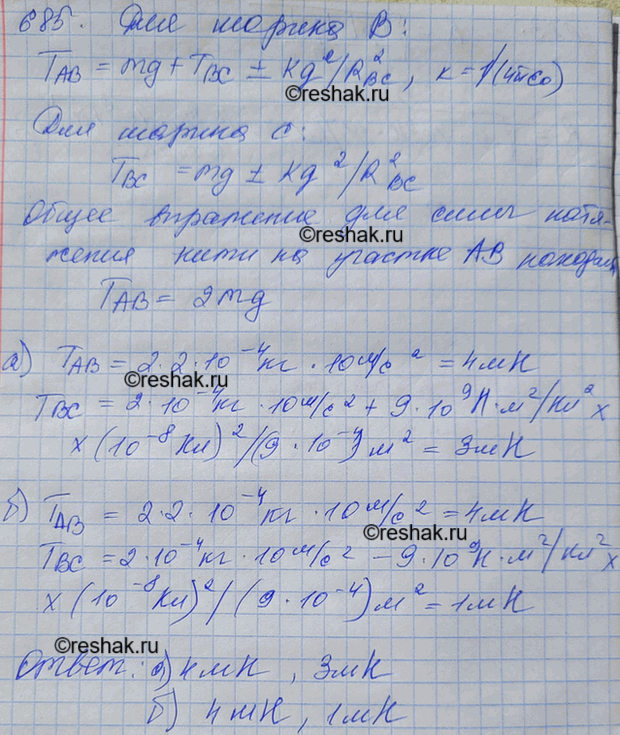 685. Для шарика B:
T_AB = mg + T_BC ± kq²/R²_BC, к = 1/(4πε0)
©reshak.ru
Для шарика C:
T_BC = mg ± kq²/R²_BC
©reshak.ru
Общее выражение для силы натя-
жения нити на участке AB находим
T_AB = 2mg
а) T_AB = 2·2·10⁻⁴кг · 10м/с² = 4мН
©reshak.ru
T_BC = 2·10⁻⁴кг · 10м/с² + 9·10⁹Н·м²/Кл² ×
× (10⁻⁸Кл)²/(9·10⁻⁴)м² = 3мН
б) T_AB = 2·2·10⁻⁴кг · 10м/с² = 4мН
©reshak.ru
T_BC = 2·10⁻⁴кг · 10м/с² − 9·10⁹Н·м²/Кл² ×
× (10⁻⁸Кл)²/(9·10⁻⁴)м² = 1мН
©reshak.ru
Ответ: а) 4мН, 3мН
б) 4мН, 1мН